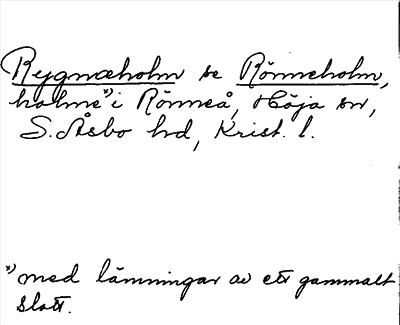 Rygnæholm se Rönneholm,
holme*) i Rönneå, Höja sn,
S. Åsbo hd, Krist. l.
*) med lämningar av ett gammalt
slott.